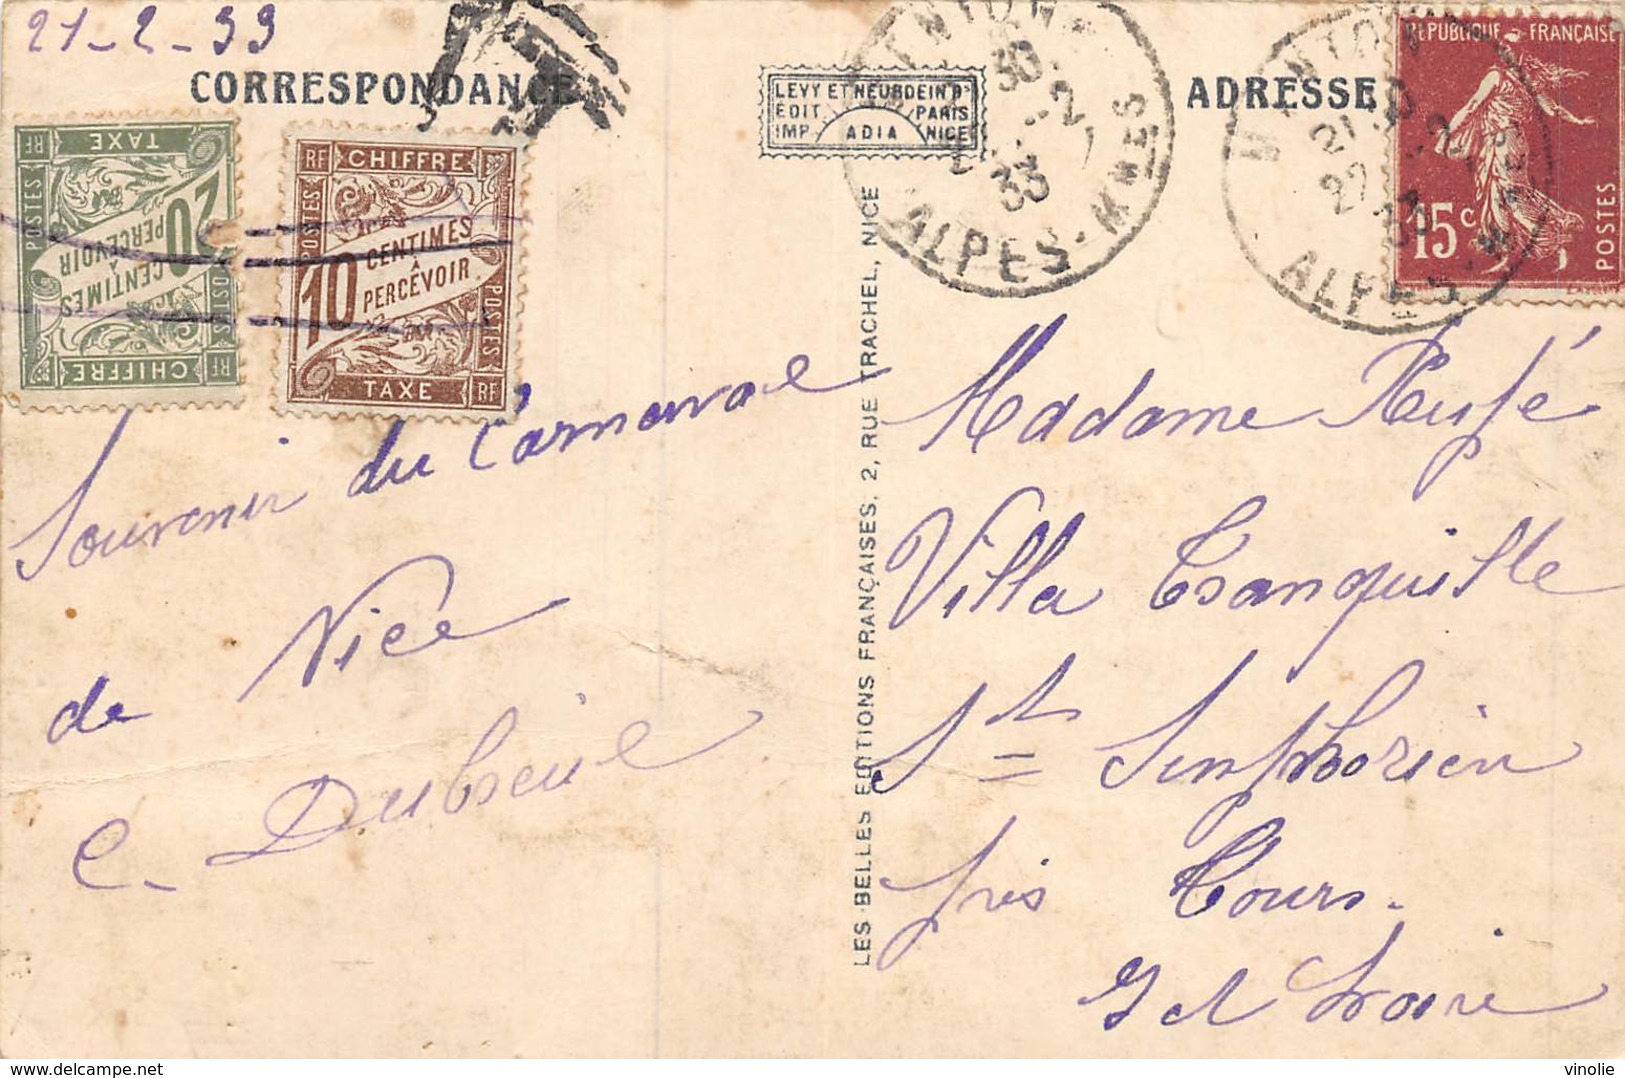 21-2-33
CORRESPONDANCE
LEVY ET NEURDEIN Rs
EDIT PARIS
IMP. ADIA NICE
ADRESSE
RF CHIFFRE RF
POSTES
20 CENTIMES
À
PERCEVOIR
POSTES
RF TAXE
RF CHIFFRE
POSTES
10 CENTIMES
À
PERCEVOIR
POSTES
TAXE RF
30
-2
33
ALPES-MMES
21 30
22 -2
33
ALPES-M
RÉPUBLIQUE FRANÇAISE
15c
POSTES
Souvenir du Carnaval
de Nice
C. Dubreuil
LES BELLES EDITIONS FRANÇAISES. 2, RUE TRACHEL, NICE
Madame Rufé
Villa Tranquille
St Simphorien
près Tours.
I et Loire
delcampe.net
vinolie